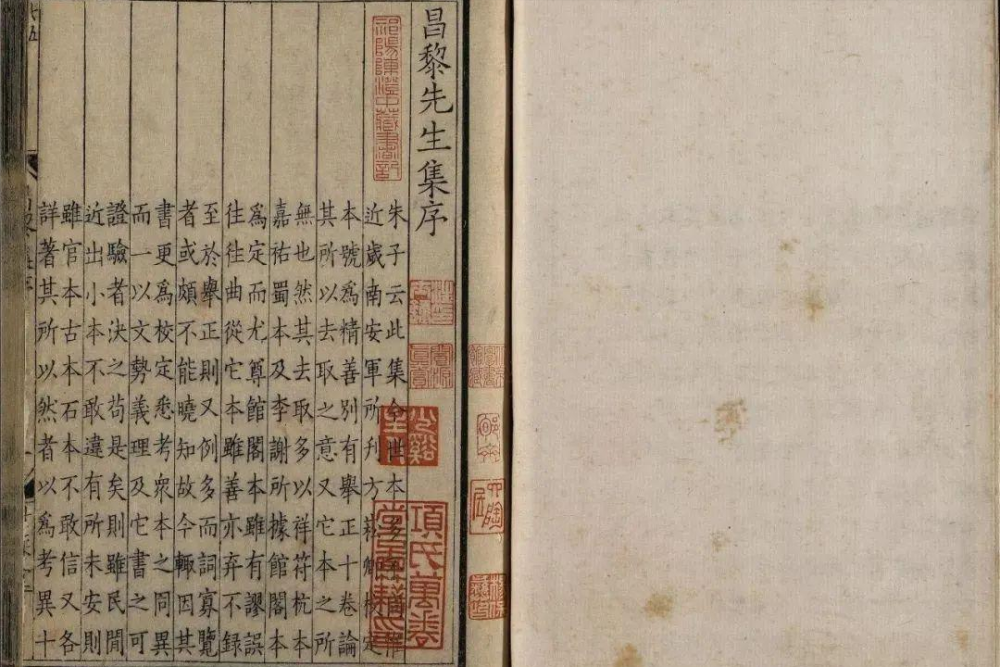 昌黎先生集序
祁陽陳澄中藏書記
朱子云此集今世本多惟
近歲南安軍所刊方崧卿校定
本號爲精善別有舉正十卷論
其所以去取之意又它本之所
無也然其去取多以祥符杭本
嘉祐蜀本及李謝所據館閣本
爲定而尤尊館閣本雖有謬誤
往往曲從它本雖善亦弃不録
至於舉正則又例多而詞寡覽
者或頗不能曉知故今輒因其
書更爲校定悉考衆本之同異
而一以文勢義理及它書之可
證驗者決之苟是矣則雖民間
近出小本不敢違有所未安則
雖官本古本石本不敢信又各
詳著其所以然者以爲考異十
少谿主人
項氏萬卷堂圖籍印